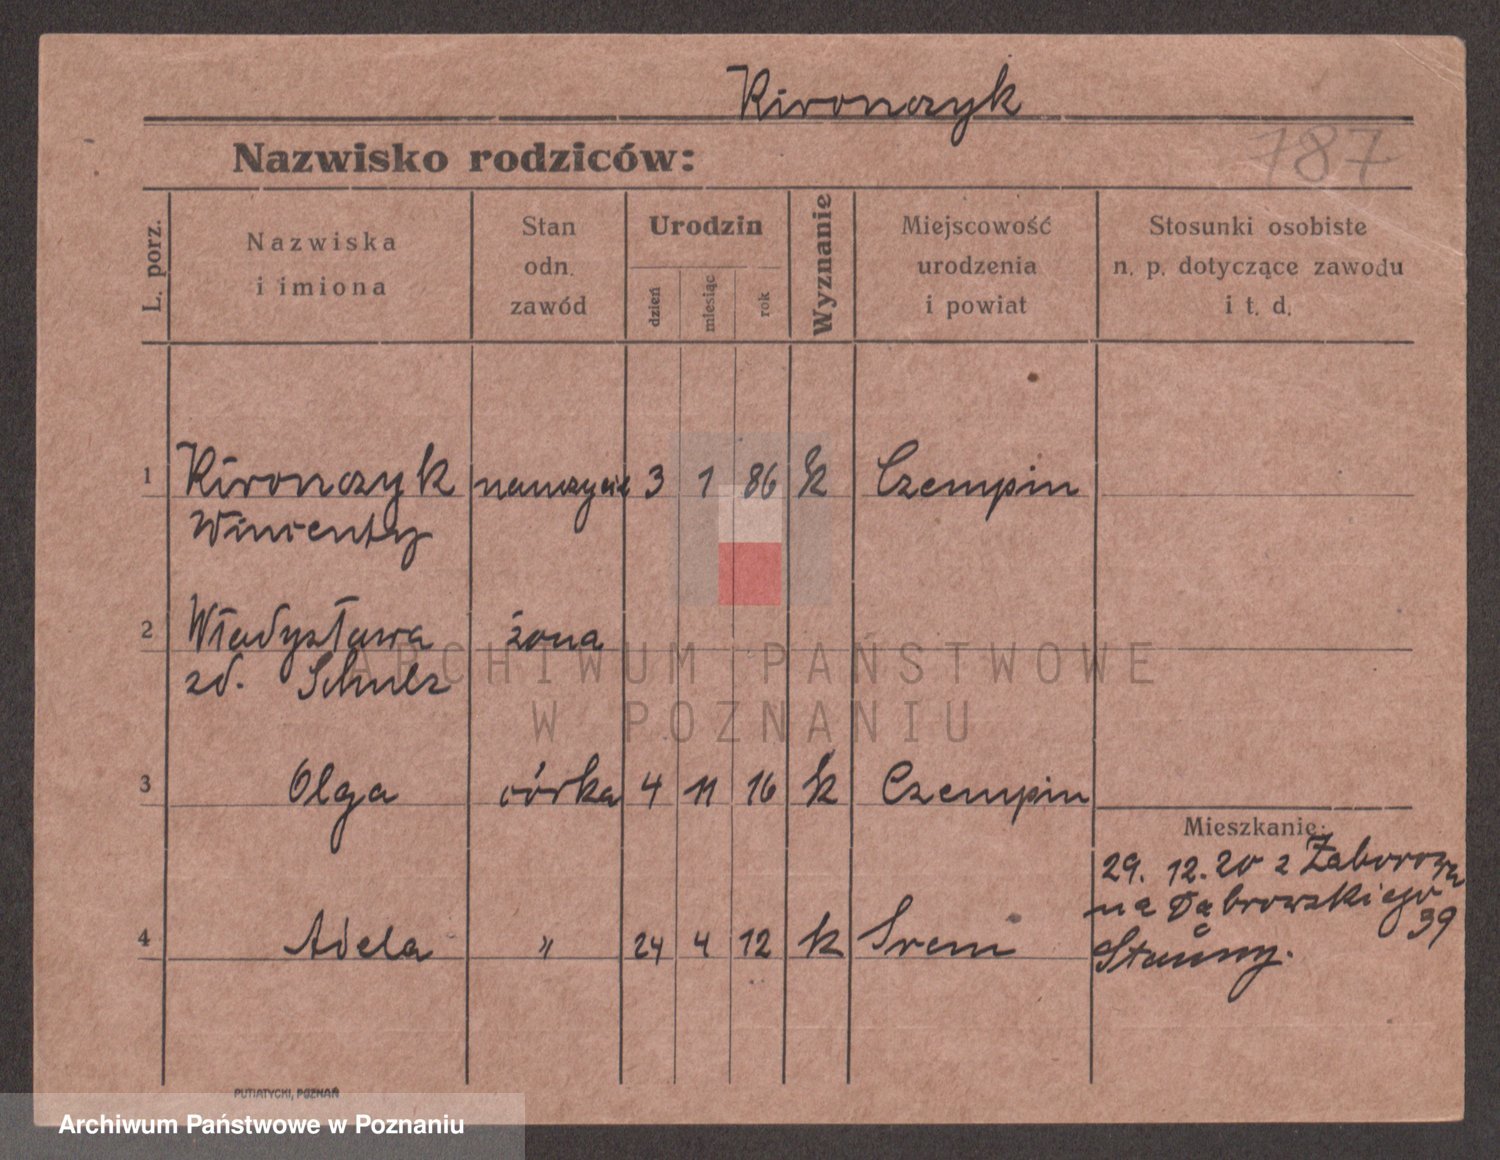 Kironczyk
187
Nazwisko rodziców:
L. porz.
Nazwiska
i imiona
Stan
odn.
zawód
Urodzin
dzień
miesiąc
rok
Wyznanie
Miejscowość
urodzenia
i powiat
Stosunki osobiste
n. p. dotyczące zawodu
i t. d.
1 Kironczyk nauczyciel 3 1 86 k Czempin
Wincenty
2 Władysława żona
zd. Schulz
3 Olga córka 4 11 16 k Czempin
Mieszkanie:
29. 12. 20 z Zaborowa
na Dąbrowskiego
39
4 Adela " 24 4 12 k Srem
PUTIATYCKI, POZNAŃ
ARCHIWUM PAŃSTWOWE
W POZNANIU
Archiwum Państwowe w Poznaniu